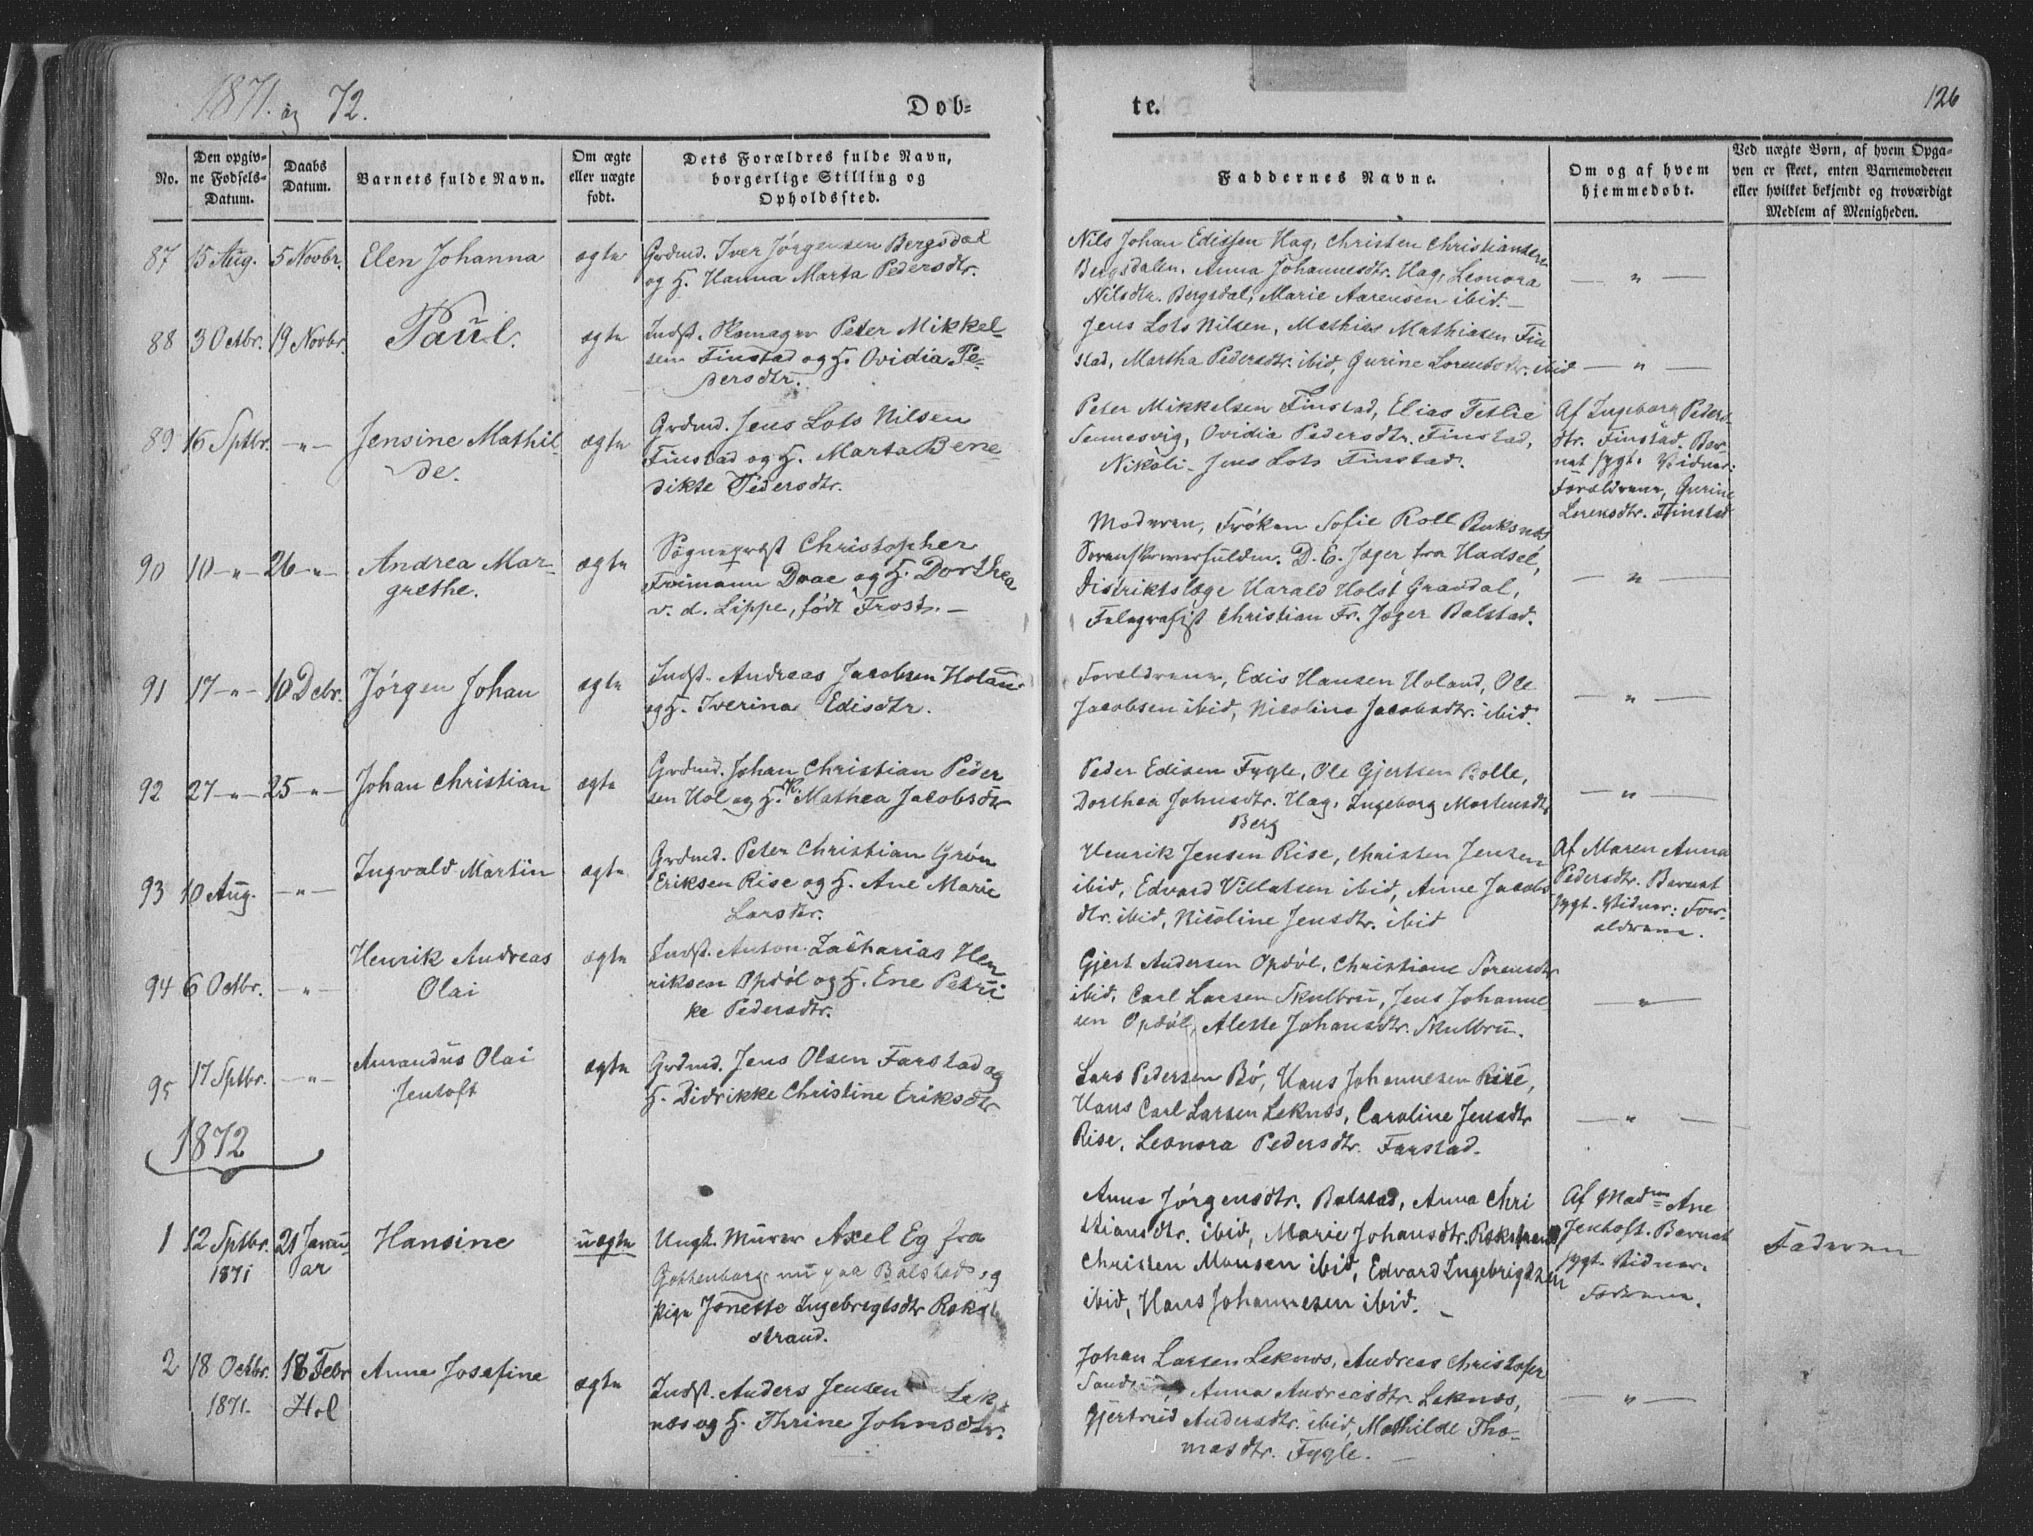 1871. og 72.
Døb=
te.
126
No.
Den opgiv-
ne Fødsels-
Datum.
Daabs
Datum.
Barnets fulde Navn.
Om ægte
eller uægte
født.
Dets Forældres fulde Navn,
borgerlige Stilling og
Opholdssted.
Faddernes Navne.
Om og af hvem
hjemmedøbt.
Ved uægte Børn, af hvem Opga-
ven er skeet, enten Barnemoderen
eller hvilket bekjendt og troværdigt
Medlem af Menigheden.
87 15 Aug. 5 Novbr. Elen Johanna ægte
Grdmd. Iver Jørgensen Bergsdal
og H. Hanna Marta Pedersdtr.
Nils Johan Edissen Hag, Christen Christiansen
Bergsdalen. Anna Johannesdtr. Hag, Leonora
Nilsdtr. Bergsdal, Marie Aarensen ibid. —
— " —
88 3 Octbr. 19 Novbr. Paul. ægte
Indst. Peter Mikkel-
sen Finstad og H. Ovidia Pe-
dersdtr.
Jens Lots Nilsen, Mathias Mathiasen Fin
stad, Martha Pedersdtr. ibid, Gurine Lorentsdtr. ibid
— " —
89 16 Sptbr. — " — Jensine Mathil-
de.
ægte
Grdmd. Jens Lots Nilsen
Finstad og H. Marta Bene
dikte Pedersdtr.
Peter Mikkelsen Finstad, Elias Tetlie
Sennesvig, Ovidia Pedersdtr. Finstad,
Nikoli - Jens Lots Finstad.
Af Ingeborg Peders
dtr. Finstad. Bar-
net sygt. Vidner:
Forældrene, Gurine
Lorensdtr. Finstad
90 10 — " — 26 — " — Andrea Mar-
grethe.
ægte
Sognepræst Christopher
Frimann Omae og H. Dorthea
v. d. Lippe, født Frost. —
Moderen, Frøken Sofie Roll Buksnæs
Sorenskriverfuldm. D. E. Jæger fra Hadsel,
Distriktslæge Harald Holst Gravdal,
Telegrafist Christian Fr. Jæger Balstad.
— " —
91 17 — " — 10 Decbr. Jørgen Johan ægte
Indst. Andreas Jacobsen Holand
og H. Iverina Edisdtr.
Forældrene, Edis Hansen Holand, Ole
Jacobsen ibid, Nicolina Jacobsdtr. ibid.
— " —
92 27 — " — 25 — " — Johan Christian ægte
Grdmd. Johan Christian Peder
sen Hol og H. Mathea Jacobsdtr
Peder Edisen Fygle, Ole Gjertsen Bolle,
Dorthea Johnsdtr. Hag, Ingeborg Mortensdtr
Berg
— " —
93 10 Aug. — " — Ingvald Martin ægte
Grdmd. Peter Christian Grøn
Eriksen Rise og H. Ane Marie
Larsdtr.
Henrik Jensen Rise, Christen Jensen
ibid, Edvard Villatsen ibid, Anne Jacobs
dtr. ibid, Nicoline Jensdtr. ibid
Af Maren Anna
Pedersdtr. Barnet
sygt. Vidner: For-
ældrene.
94 6 Octbr. — " — Henrik Andreas
Olai
ægte
Indst. Anton Zacharias Hen
riksen Opdøl og H. Ene Petri
ke Pedersdtr.
Gjert Andersen Opdøl, Christiane Sørensdtr
ibid, Carl Larsen Skulbru, Jens Johanne
sen Opdøl, Alette Johansdtr. Skulbru.
— " —
95 17 Sptbr. — " — Amandus Olai
Jentoft
ægte
Grdmd. Jens Olsen Farstad og
H. Didrikke Christine Eriksdtr
Lars Pedersen Bø, Hans Johannesen Rise,
Hans Carl Larsen Leknæs, Caroline Jensdtr
Rise, Leonora Pedersdtr. Farstad.
— " —
1872
1 12 Sptbr. 21 Janu
1871 ar
Hansine uægte
Ungk. Murer Axel Eg fra
Gottenborg, nu paa Balstad og
Pige Jonette Ingebrigtsdtr Rok
strand.
Anna Jørgensdtr. Balstad, Anna Chri
stiansdtr. ibid, Marie Johansdtr.
Christen Monsen ibid, Edvard Ingebrigtsen
ibid, Hans Johannesen ibid. —
Af Madm Ane
Jentoft. Barnet
sygt. Vidner.
Faderen
2 18 Octbr. 18 Febr
1871. Hol
Anna Josefine ægte
Indst. Anders Jensen Lek
næs og H. Thrine Johnsdtr.
Johan Larsen Leknæs, Andreas Christofer
Anna Andreasdtr. Leknæs,
Gjertrud Andersdtr. ibid, Mathilde Tho-
masdtr. Fygle. —
— " —